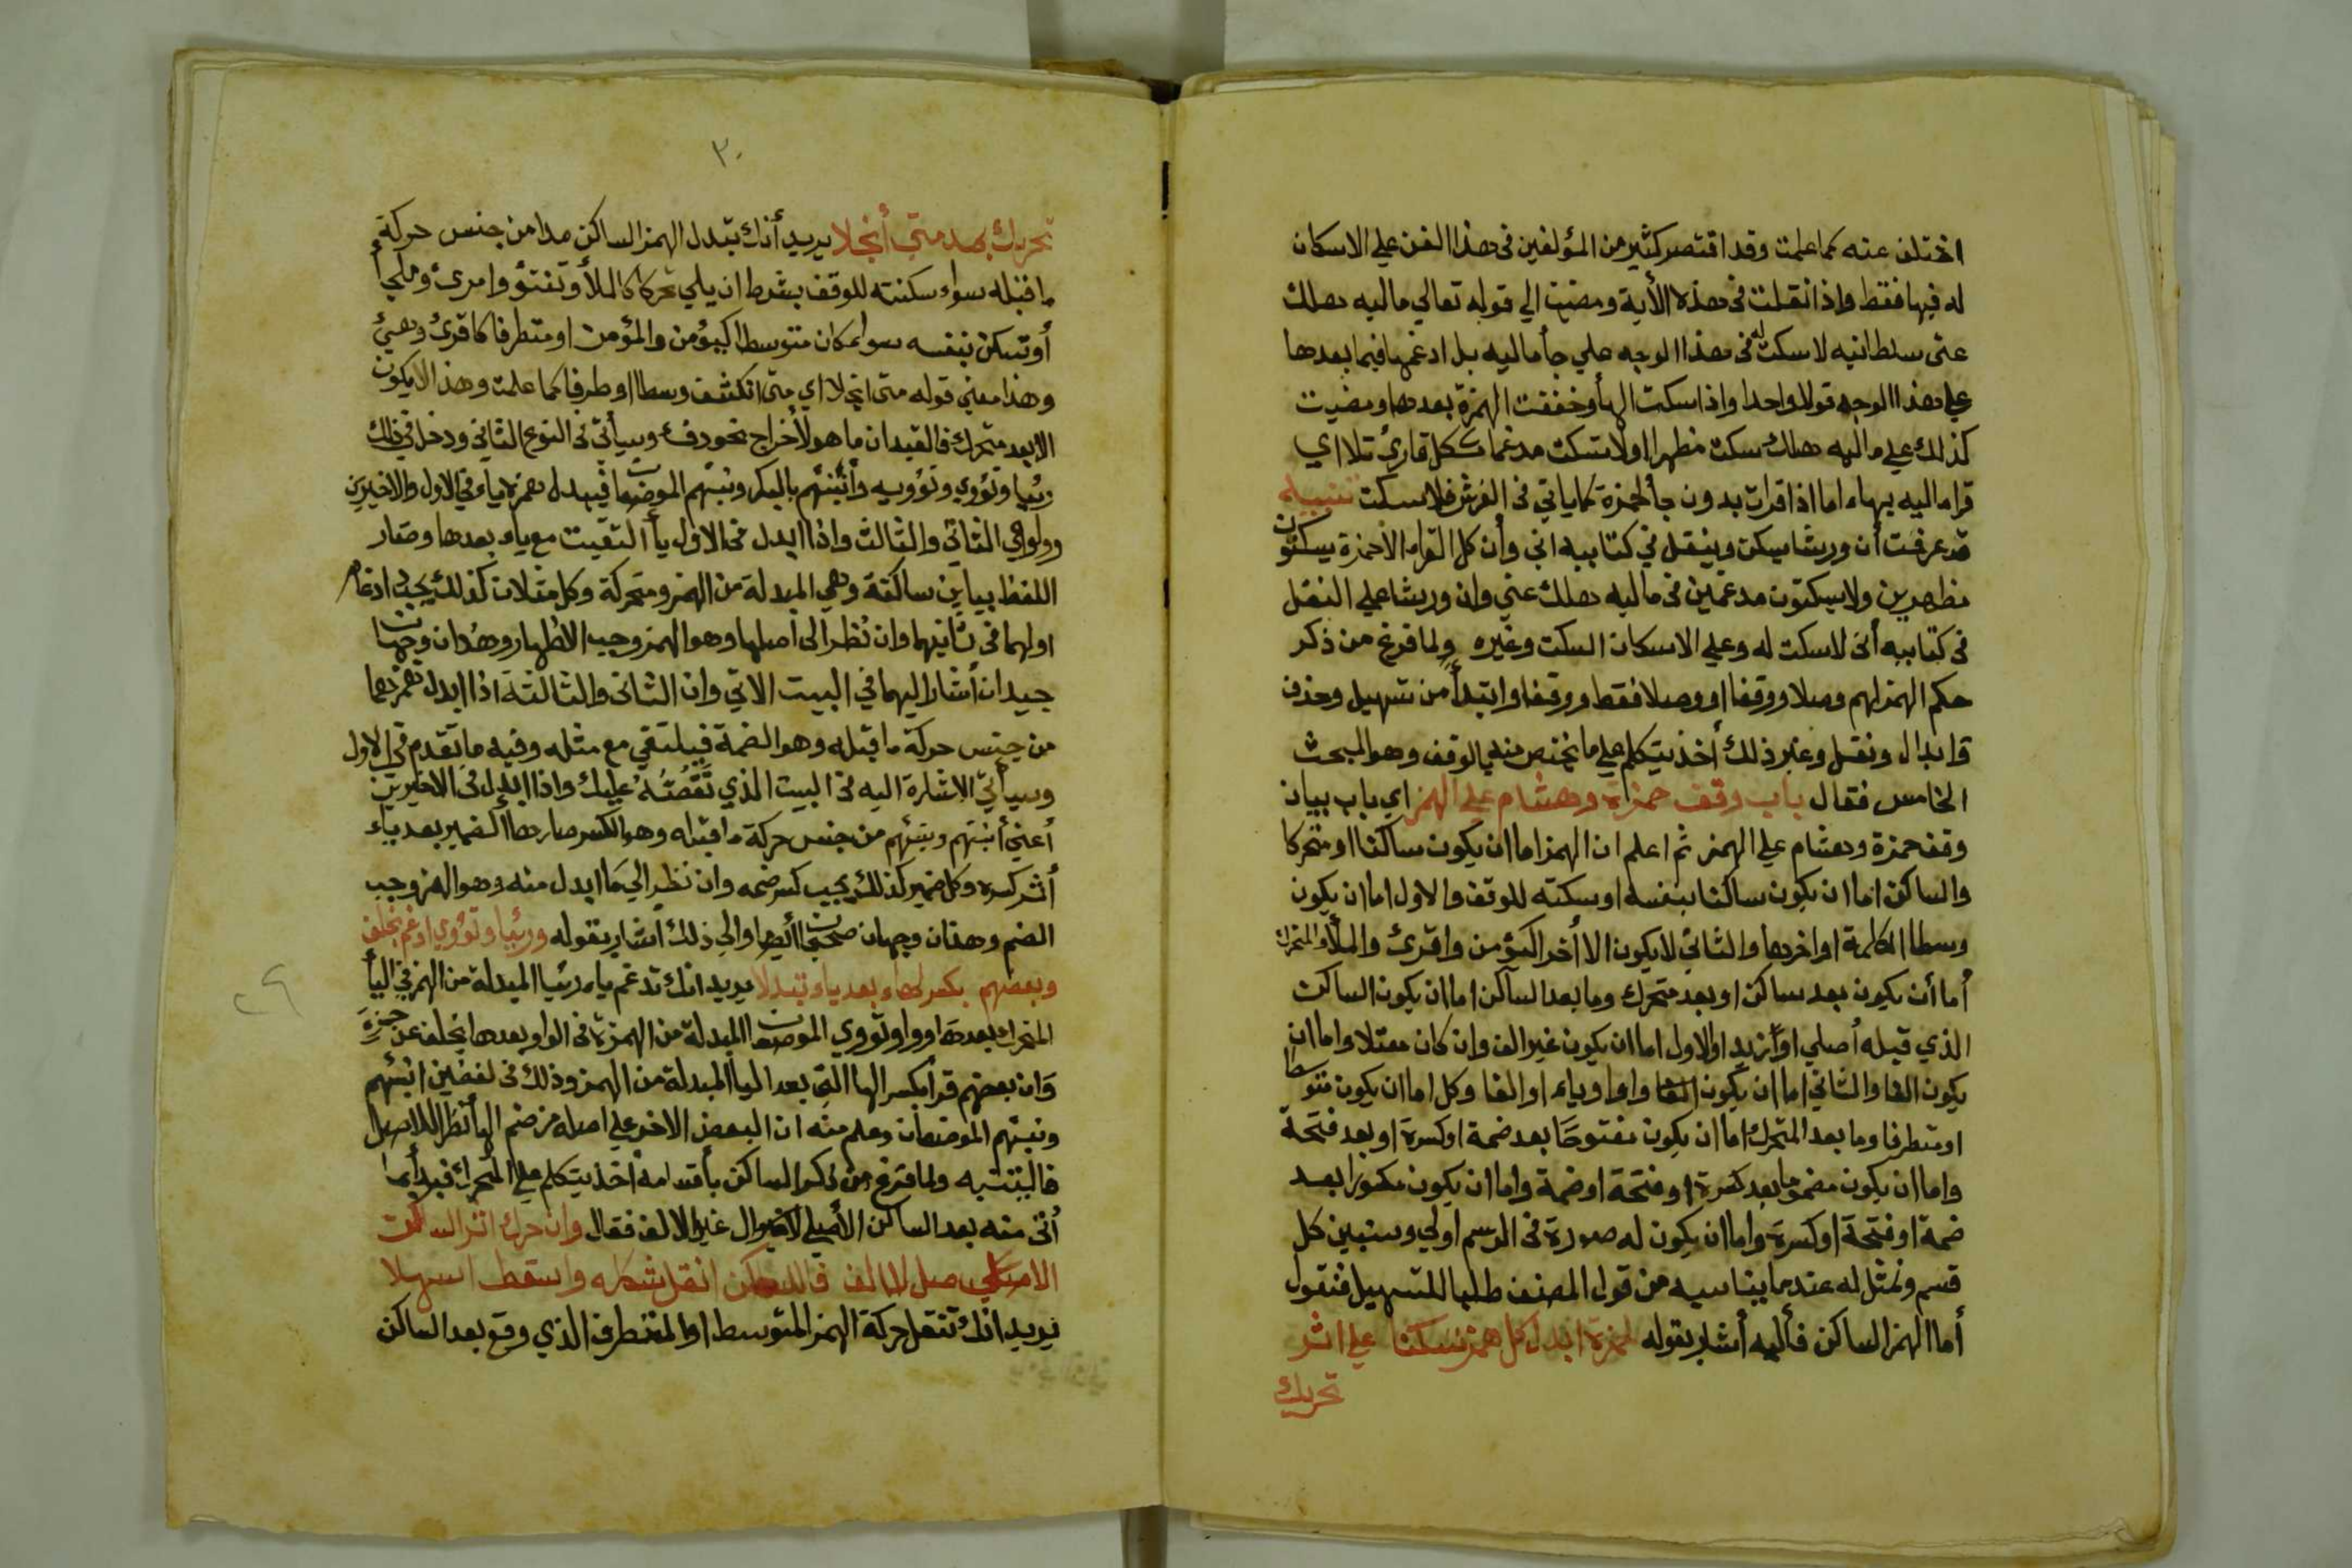 اختلف عنه كما علمت وقد اقتصر كثير من المؤلفين في هذا الفن علي الاسكان
له فيها فقط واذا نقلت في هذه الأية ومضيت الي قوله تعالي ماليه هلك
عني سلطانيه لا سكت له في هذا الوجه علي جأ ماليه بل ادغمها فيما بعدها
علي هذا الوجه قولا واحدا واذا سكت الهأ وخففت الهمزة بعدها ومضيت
كذلك علي ماليه هلك سكت مظهرا اولا سكت مدغما ككل قارئ تلا اي
قرا ماليه بهاء اما اذا قرات بدون جأ لحمزة كما ياتي في الفرش فلا سكت تنبيه
قد عرفت أن ورشا يسكن وينقل في كتابيه اني وأن كل القراء الا حمزة يسكتون
مظهرين ولا يسكتون مدغمين في ماليه هلك عني وان ورشا علي النقل
في كتابيه أني لا سكت له وعلي الاسكان السكت وغيره ولما فرغ من ذكر
حكم الهمز لهم وصلا ووقفا او وصلا فقط ووقفا وابتدأ من تسهيل وحذف
وابدال ونقل وغير ذلك أخذ يتكلم علي ما يختص منه بالوقف وهو المبحث
الخامس فقال باب وقف حمزة وهشام علي الهمز اي باب بيان
وقف حمزة وهشام علي الهمز ثم اعلم ان الهمز اما ان يكون ساكنا او متحركا
والساكن اما ان يكون ساكنا بنفسه او سكنته للوقف والاول اما ان يكون
وسطا الكلمة او اخرها والثاني لا يكون الا أخرا كيؤمن واقرئ والملأ والمتحرك
أما أن يكون بعد ساكن او بعد متحرك وما بعد الساكن اما ان يكون الساكن
الذي قبله أصلي او زيد والاول اما ان يكون غير الف وان كان معتلا واما ان
يكون الفا والثاني اما ان يكون واوا وياء او الفا وكل اما ان يكون متوسطا
او متطرفا وما بعد المتحرك اما ان يكون مفتوحا بعد ضمة او كسرة او بعد فتحة
واما ان يكون مضموما بعد كسرة او فتحة او ضمة واما ان يكون مكسورا بعد
ضمة او فتحة او كسرة واما ان يكون له صورة في الرسم اولي وسنبين كل
قسم ونمثل له عند ما يناسبه من قول المصنف طلبا للتسهيل فنقول
أما الهمز الساكن فأليه أشار بقوله لحمزة ابدل كل همز سكنا علي اثر
تحريك
٣٠
تحريك بمد متي أنجلا يريد أنك تبدل الهمز الساكن مدا من جنس حركة
ما قبله سواء سكنته للوقف بشرط ان يلي محركا كالملأ وتفتؤ وامرئ وملجأ
أو تسكن بنفسه سواء كان متوسطا كيؤمن والمؤمن او متطرفا كاقرئ وهيئ
وهذا معني قوله متي انجلا اي متي انكشف وسطا او طرفا كما علمت وهذا لا يكون
الا بعد متحرك فالقيد ان ما هو لأخراج نحو دفء وسيأتي في النوع الثاني ودخل في ذلك
رئيا وتؤوي وتؤويه وأنبئهم بالبكر ونبئهم الموضعان فيبدل همزه ياء في الاول والاخيرين
وواو في الثاني والثالث واذا ابدل في الاول يأ التقيت مع ياء بعدها وصار
اللفظ بياين ساكنة وهي المبدلة من الهمز ومتحركة وكل مثلان كذلك يجب ادغام
اولهما في ثانيهما وان نظر الي أصلها وهو الهمز وجب الاظهار وهذان وجهان
جيدان أشار اليهما في البيت الاتي وان الثاني والثالثة اذا ابدل همزهما
من جنس حركة ما قبله وهو الضمة فيلتقي مع مثله وفيه ما تقدم في الاول
وسيأتي الاشارة اليه في البيت الذي نقصته عليك واذا ابدل في الاخيرين
أعني أنبئهم ونبئهم من جنس حركة ما قبله وهو الكسر صار ها الضمير بعد ياء
أثر كسره وكل ضمير كذلك يجب كسر ضمه وان نظر الي ما ابدل منه وهو الهمز وجب
الضم وهذان وجهان صحيحان أيضا والي ذلك أشار بقوله ورئيا وتؤوي ادغم بخلف
وبعضهم بكسر لهاء بعد ياء تبدلا يريد انك تدغم ياء رئيا المبدلة من الهمز في اليأ
المتحرك بعدها وواو تؤوي الموضعان المبدلة من الهمزة في الواو بعدها بخلف عن حمزة
وان بعضهم قرأ بكسر الها التي بعد اليا المبدلة من الهمز وذلك في لفظين انبئهم
ونبئهم الموضعان وعلم منه ان البعض الاخر علي اصله من ضم الهأ نظرا للاصل
فاليتنبه ولما فرغ من ذكر الساكن بأقسامه أخذ يتكلم علي المتحرك فبدأ بما
أتي منه بعد الساكن الأصلي غير الالف فقال وان حرك اثر الساكن
الاصلي انقل شكله واسقط اسهلا
يريد انك تنقل حركة الهمز المتوسط او المتطرف الذي وقع بعد الساكن